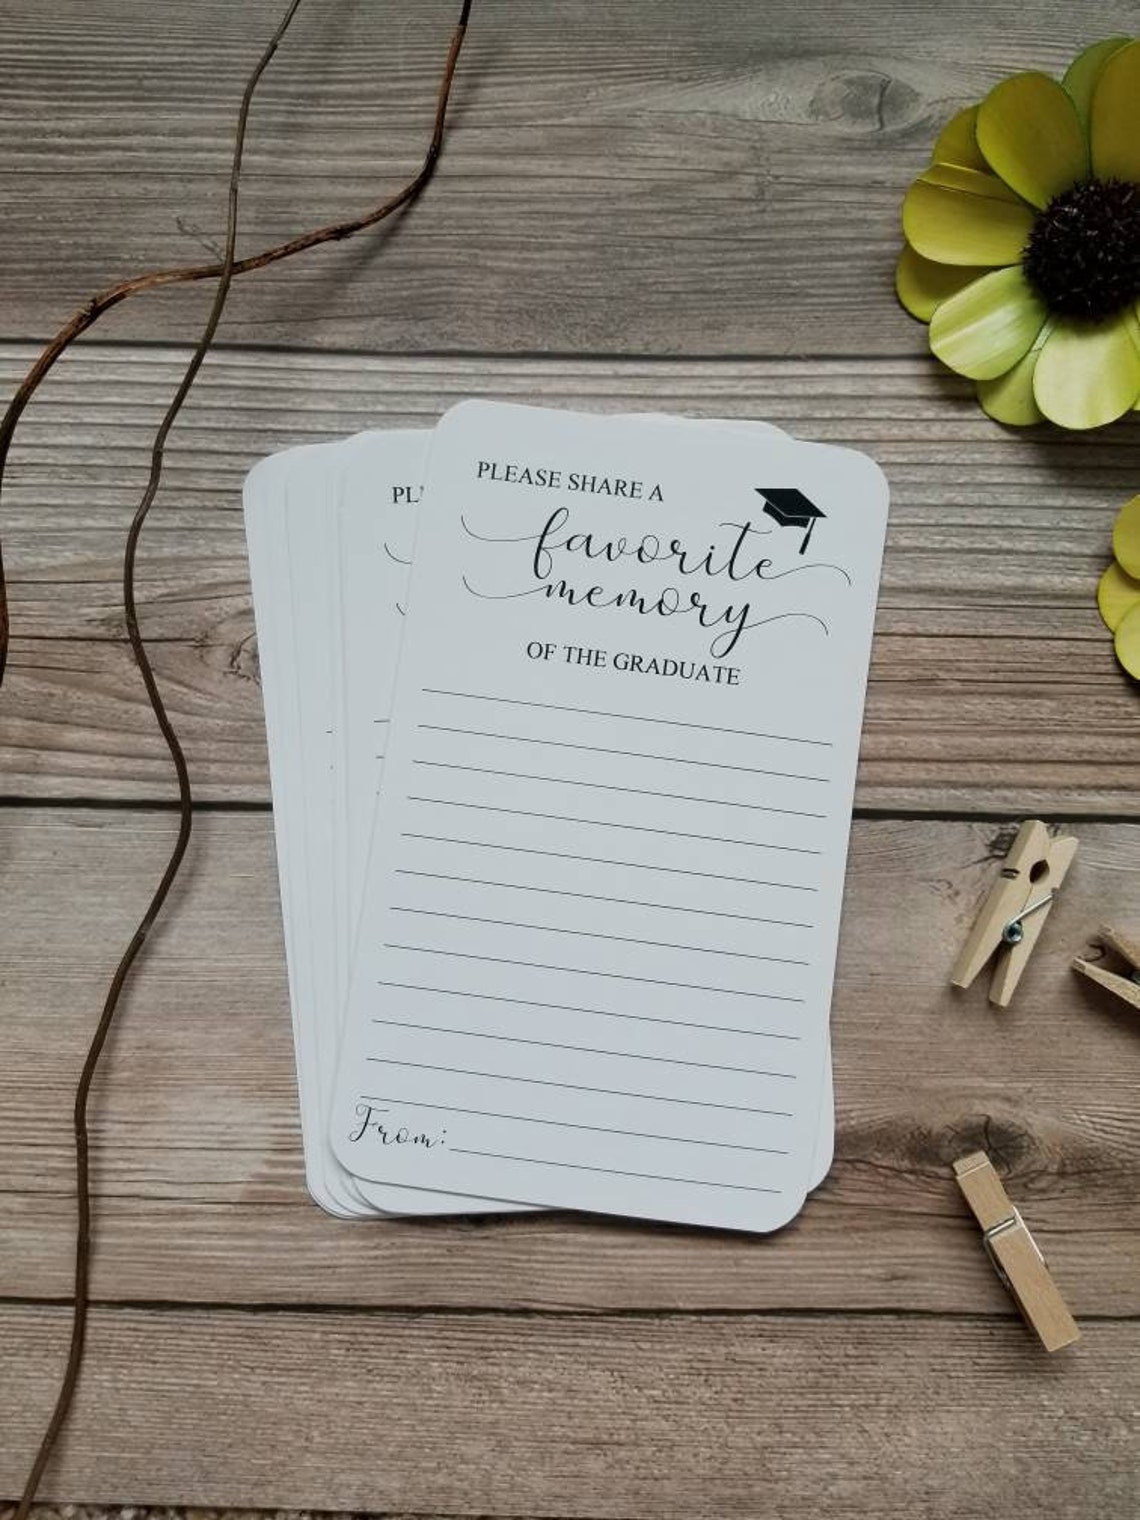 PLEASE SHARE A
favorite
memory
OF THE GRADUATE
From:
PL